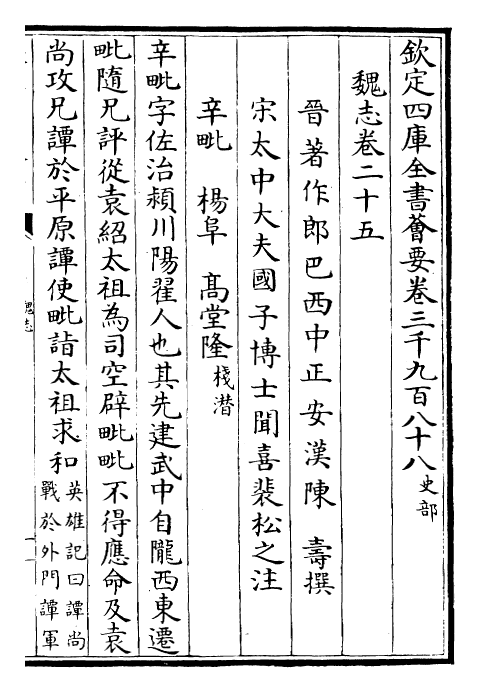 欽定四庫全書薈要卷三千九百八十八史部
魏志卷二十五
晉著作郎巴西中正安漢陳壽撰
宋太中大夫國子博士聞喜裴松之注
辛毗 楊阜 髙堂隆棧潛
辛毗字佐治潁川陽翟人也其先建武中自隴西東遷
毗隨兄評從袁紹太祖為司空辟毗毗不得應命及袁
尚攻兄譚於平原譚使毗詣太祖求和英雄記曰譚尚
戰於外門譚軍
魏志